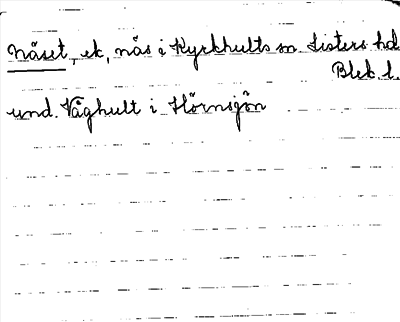 Näset, ek, näs i Kyrkhults sn. Listers hd
Blek. l.
und. Våghult i Hörnsjön